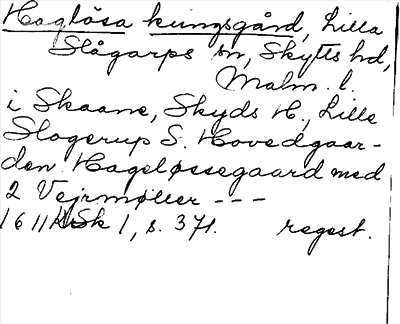 Haglösa kungsgård, Lilla
Slågarps sn, Skytts hd,
Malm. l.
i Skaane, Skyds H., Lille
Slogerup S. Hovedgaar-
den Hageløssegaard med
2 Vejrmøller ---
1611 Sk 1, s. 371. regest.